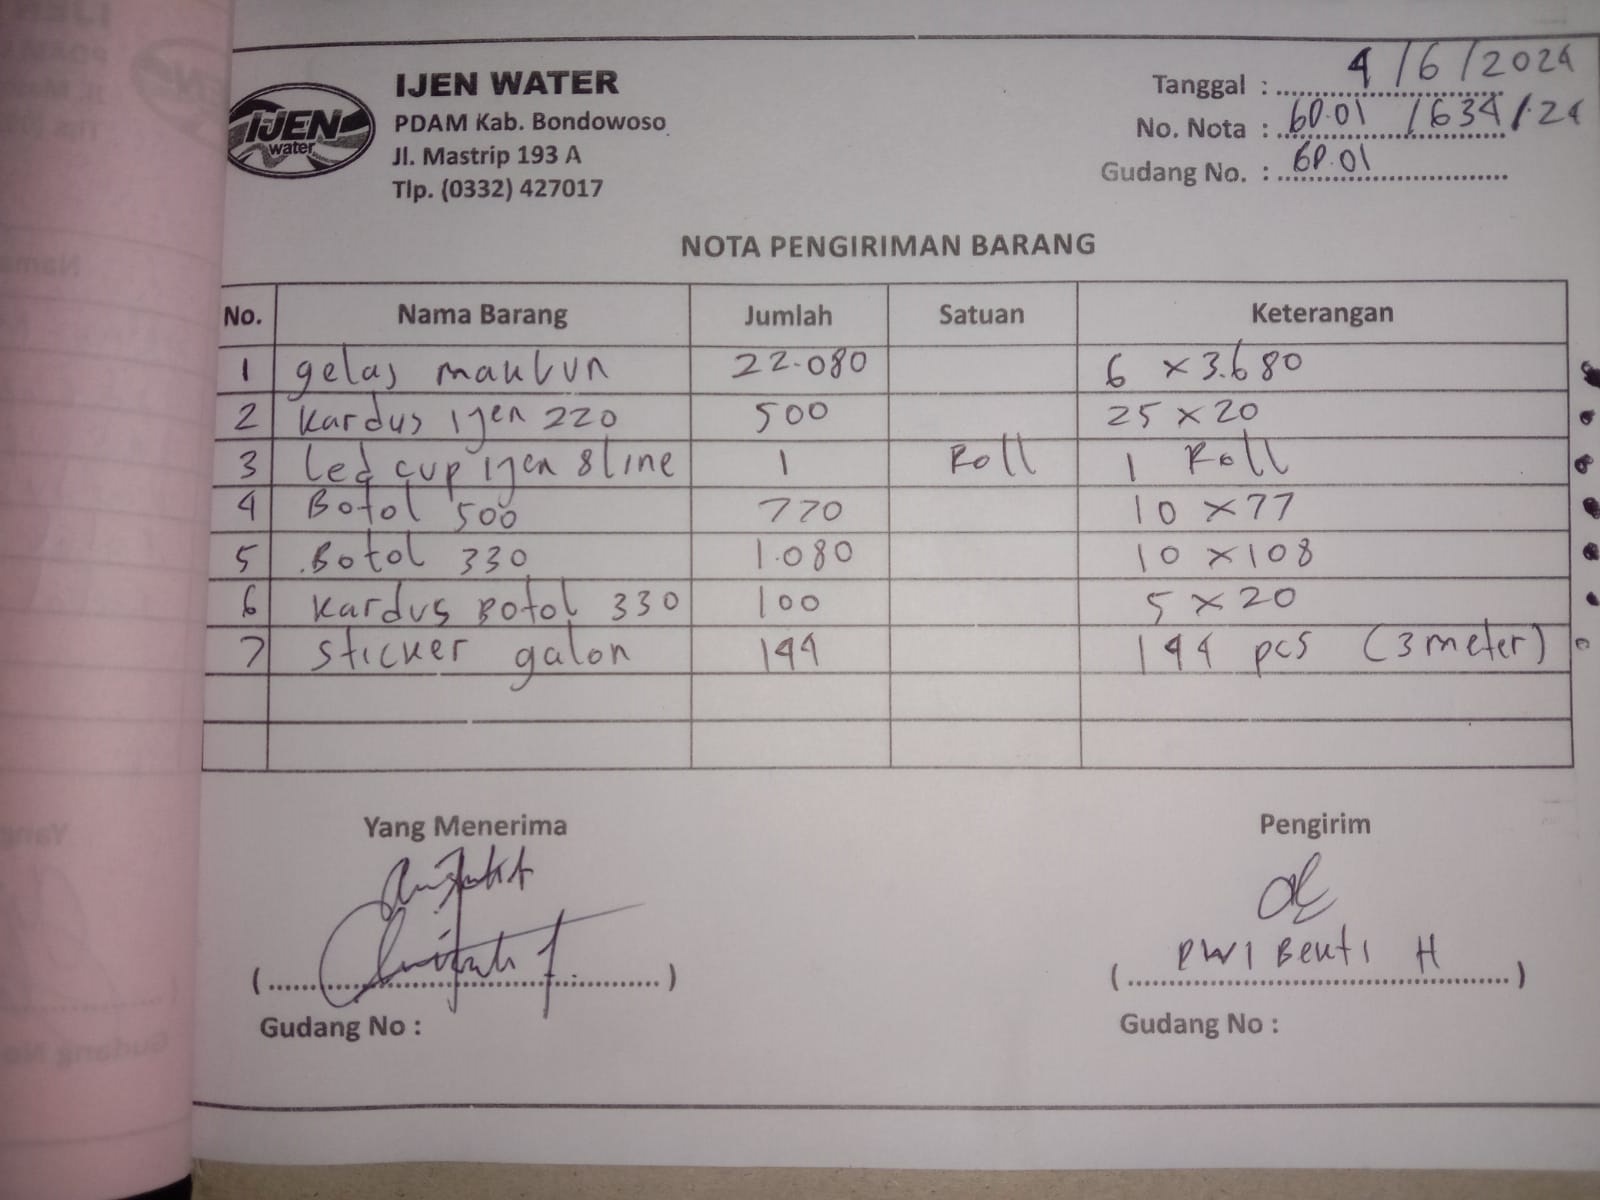 IJEN WATER
PDAM Kab. Bondowoso
Jl. Mastrip 193 A
Tlp. (0332) 427017
IJEN
water
Tanggal : 4/6/2024
No. Nota : 60.01 /634/.24
Gudang No. : 60.01
NOTA PENGIRIMAN BARANG
No. Nama Barang Jumlah Satuan Keterangan
1 gelas makbun 22.080 6 x 3.680
2 Kardus Ijen 220 500 25 x 20
3 Led cup Ijen 8 line 1 Roll 1 Roll
4 Botol 500 770 10 x 77
5 Botol 330 1.080 10 x 108
6 Kardus Botol 330 100 5 x 20
7 Sticker galon 144 144 pcs (3 meter)
Yang Menerima Pengirim
DWI Bekti H
Gudang No : Gudang No :